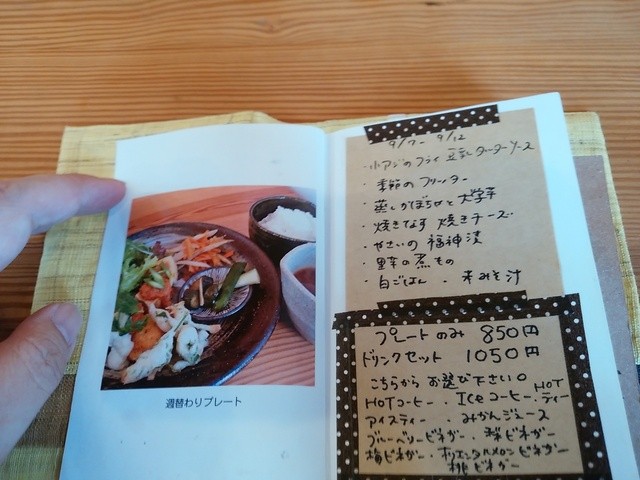 週替わりプレート
9/7- 9/12
・小アジのフライ 豆乳タルタルソース
・季節のフリッター
・蒸しかぼちゃと大学芋
・焼きなす 焼きチーズ
・やさいの福神漬
・里芋の煮もの
・白ごはん ・ 米みそ汁
プレートのみ 850円
ドリンクセット 1050円
こちらからお選び下さい。
HOTコーヒー ・ Iceコーヒー ・ HOTティー
アイスティー ・ みかんジュース
ブルーベリービネガー ・ ビネガー
梅ビネガー ・ オリエンタルメロンビネガー
桃ビネガー